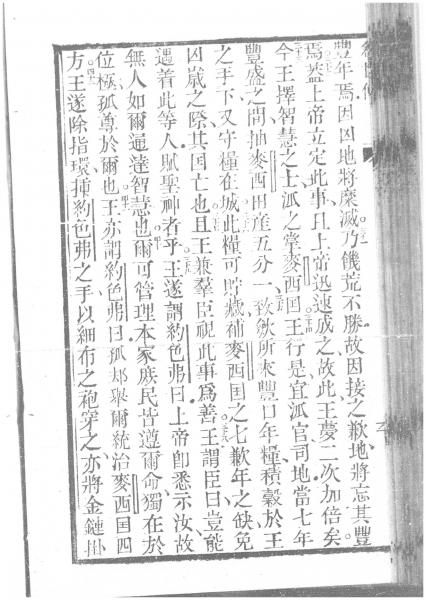 豐年焉因凶地將糜滅乃饑荒不勝故因接之歉地將忘其豐
焉蓋上帝立定此事且上帝迅速成之故此王夢二次加倍矣
今王擇智慧之士派之掌麥西国王行是宜派官司地當七年
豐盛之間抽麥西田產五分一致斂所來豐口年糧積穀於王
之手下又守糧在城此糧可貯藏補麥西国之七歉年之缺免
因歲之際其国亡也且王兼羣臣視此事爲善王謂臣曰豈能
遇着此等人賦聖神者乎王遂謂約色弗曰上帝即悉示汝故
無人如爾通達智慧也爾可管理本家族民皆遵爾命獨在於
位極孤尊於爾也王亦謂約色弗曰孤却舉爾統治麥西国四
方王遂除指環挿約色弗之手以細布之袍穿之亦將金鏈掛